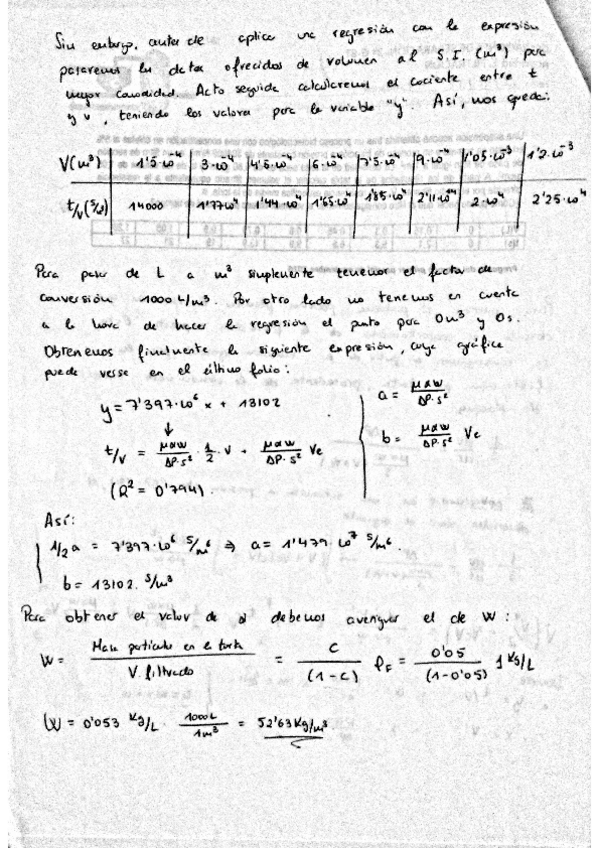 Sin embargo, antes de aplicar una regresión con la expresión
pasaremos los datos ofrecidos de volumen al S.I. (m³) para
mayor comodidad. Acto seguido calcularemos el cociente entre t
y v, teniendo los valores para la variable "y". Así, nos queda:
V(m³) | 1'5·10⁻⁴ | 3·10⁻⁴ | 4'5·10⁻⁴ | 6·10⁻⁴ | 7'5·10⁻⁴ | 9·10⁻⁴ | 1'05·10⁻³ | 1'2·10⁻³
t/v (s/m³) | 14000 | 1'77·10⁴ | 1'44·10⁴ | 1'65·10⁴ | 1'85·10⁴ | 2'11·10⁴ | 2·10⁴ | 2'25·10⁴
Para pasar de L a m³ simplemente tenemos el factor de
conversión 1000 L/m³. Por otro lado no tenemos en cuenta
a la hora de hacer la regresión el punto para 0m³ y 0s.
Obtenemos finalmente la siguiente expresión, cuya gráfica
puede verse en el último folio:
y = 7'397·10⁶ x + 13102
↓
t/v = μαw/ΔP·s² · 1/2 · V + μαw/ΔP·s² Ve
(R² = 0'794).
a = μαw/ΔP·s²
b = μαw/ΔP·s² Ve
Así:
1/2 a = 7'397·10⁶ s/m⁶ ⇒ a = 1'479·10⁷ s/m⁶.
b = 13102. s/m³
Para obtener el valor de α debemos averiguar el de W:
W = Masa partículas en la torta / V. filtrado = C/(1-C) ρF = 0'05/(1-0'05) 1 Kg/L
W = 0'053 Kg/L · 1000L/1m³ = 52'63 Kg/m³